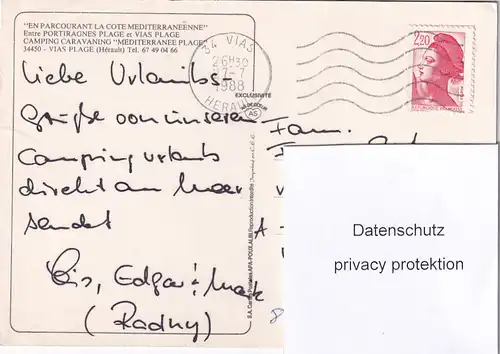 "EN PARCOURANT LA COTE MEDITERRANÉENNE"
Entre PORTIRAGNES PLAGE et VIAS PLAGE
CAMPING CARAVANING "MEDITERRANEE PLAGE"
34450 - VIAS PLAGE (Hérault) Tel. 67 49 04 66
34 VIAS
26H30
7-7
1988
HERAULT
EXCLUSIVITÉ
AS
2,20
Liebe Urlaubs-
Grüße von unserem
Campingurlaub
direkt am Meer
sendet
Edgar +
(Radny)
Fam.
A -
S.A. Cartes Postales APA-POUX, ALBI Reproduction interdite
Datenschutz
privacy protektion